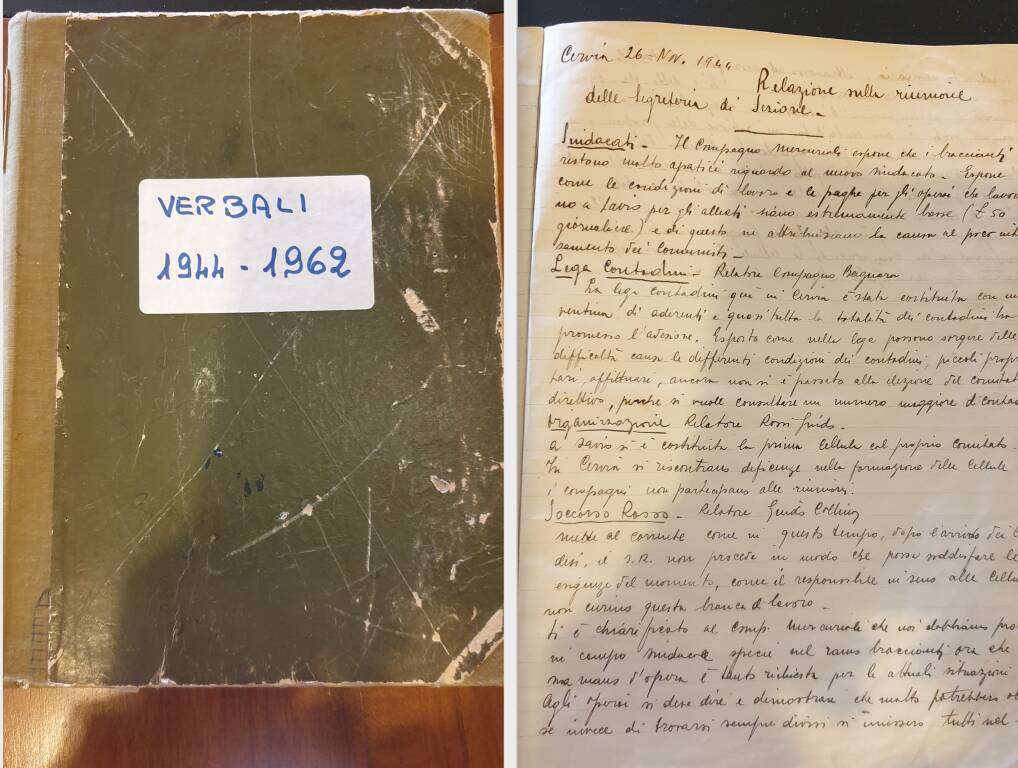 VERBALI
1944 - 1962
Cervia 26-Nov. 1944
Relazione sulla riunione
della Segreteria di Sezione -
Sindacati - Il Compagno Mercuriali espone che i braccianti
restano molto apatici riguardo al nuovo sindacato - Espone
come le condizioni di lavoro e le paghe per gli operai che lavora
no a Savio per gli alleati siano estremamente basse (£ 50
giornaliere) e di questo ne attribuiscono la causa al poco
samento dei Comunisti -
Lega Contadini - Relatore Compagno
La lega contadini qui in Cervia è stata costituita con una
ventina di aderenti e quasi tutta la totalità dei contadini ha
promesso l'adesione. Esposto come nella lega possono sorgere delle
difficoltà causa le differenti condizioni dei contadini, piccoli propr
tari, affittuari, ancora non si è passato alla elezione del comitato
direttivo, perchè si vuole consultare un numero maggiore di contad
Organizzazione Relatore Rossi Guido.
A Savio si è costituita la prima cellula col proprio comitato.
In Cervia si riscontrano deficenze nella formazione delle Cellule
i compagni non partecipano alle riunioni.
Soccorso Rosso - Relatore Guido
mette al corrente come in questo tempo, dopo l'arrivo dei
desi, il S.R. non procede in modo che possa soddisfare le
esigenze del momento, come il responsabile in seno alle Cellule
non curino questa branca di lavoro -
Si è chiarificato al Comp. Mercuriali che noi dobbiamo
in campo sindacale specie nel ramo braccianti ora che
ma mano d'opera è tanto richiesta per le attuali situazioni
Agli operai si deve dire e dimostrare che molto potrebbero
se invece di trovarsi sempre divisi si unissero tutti nel -